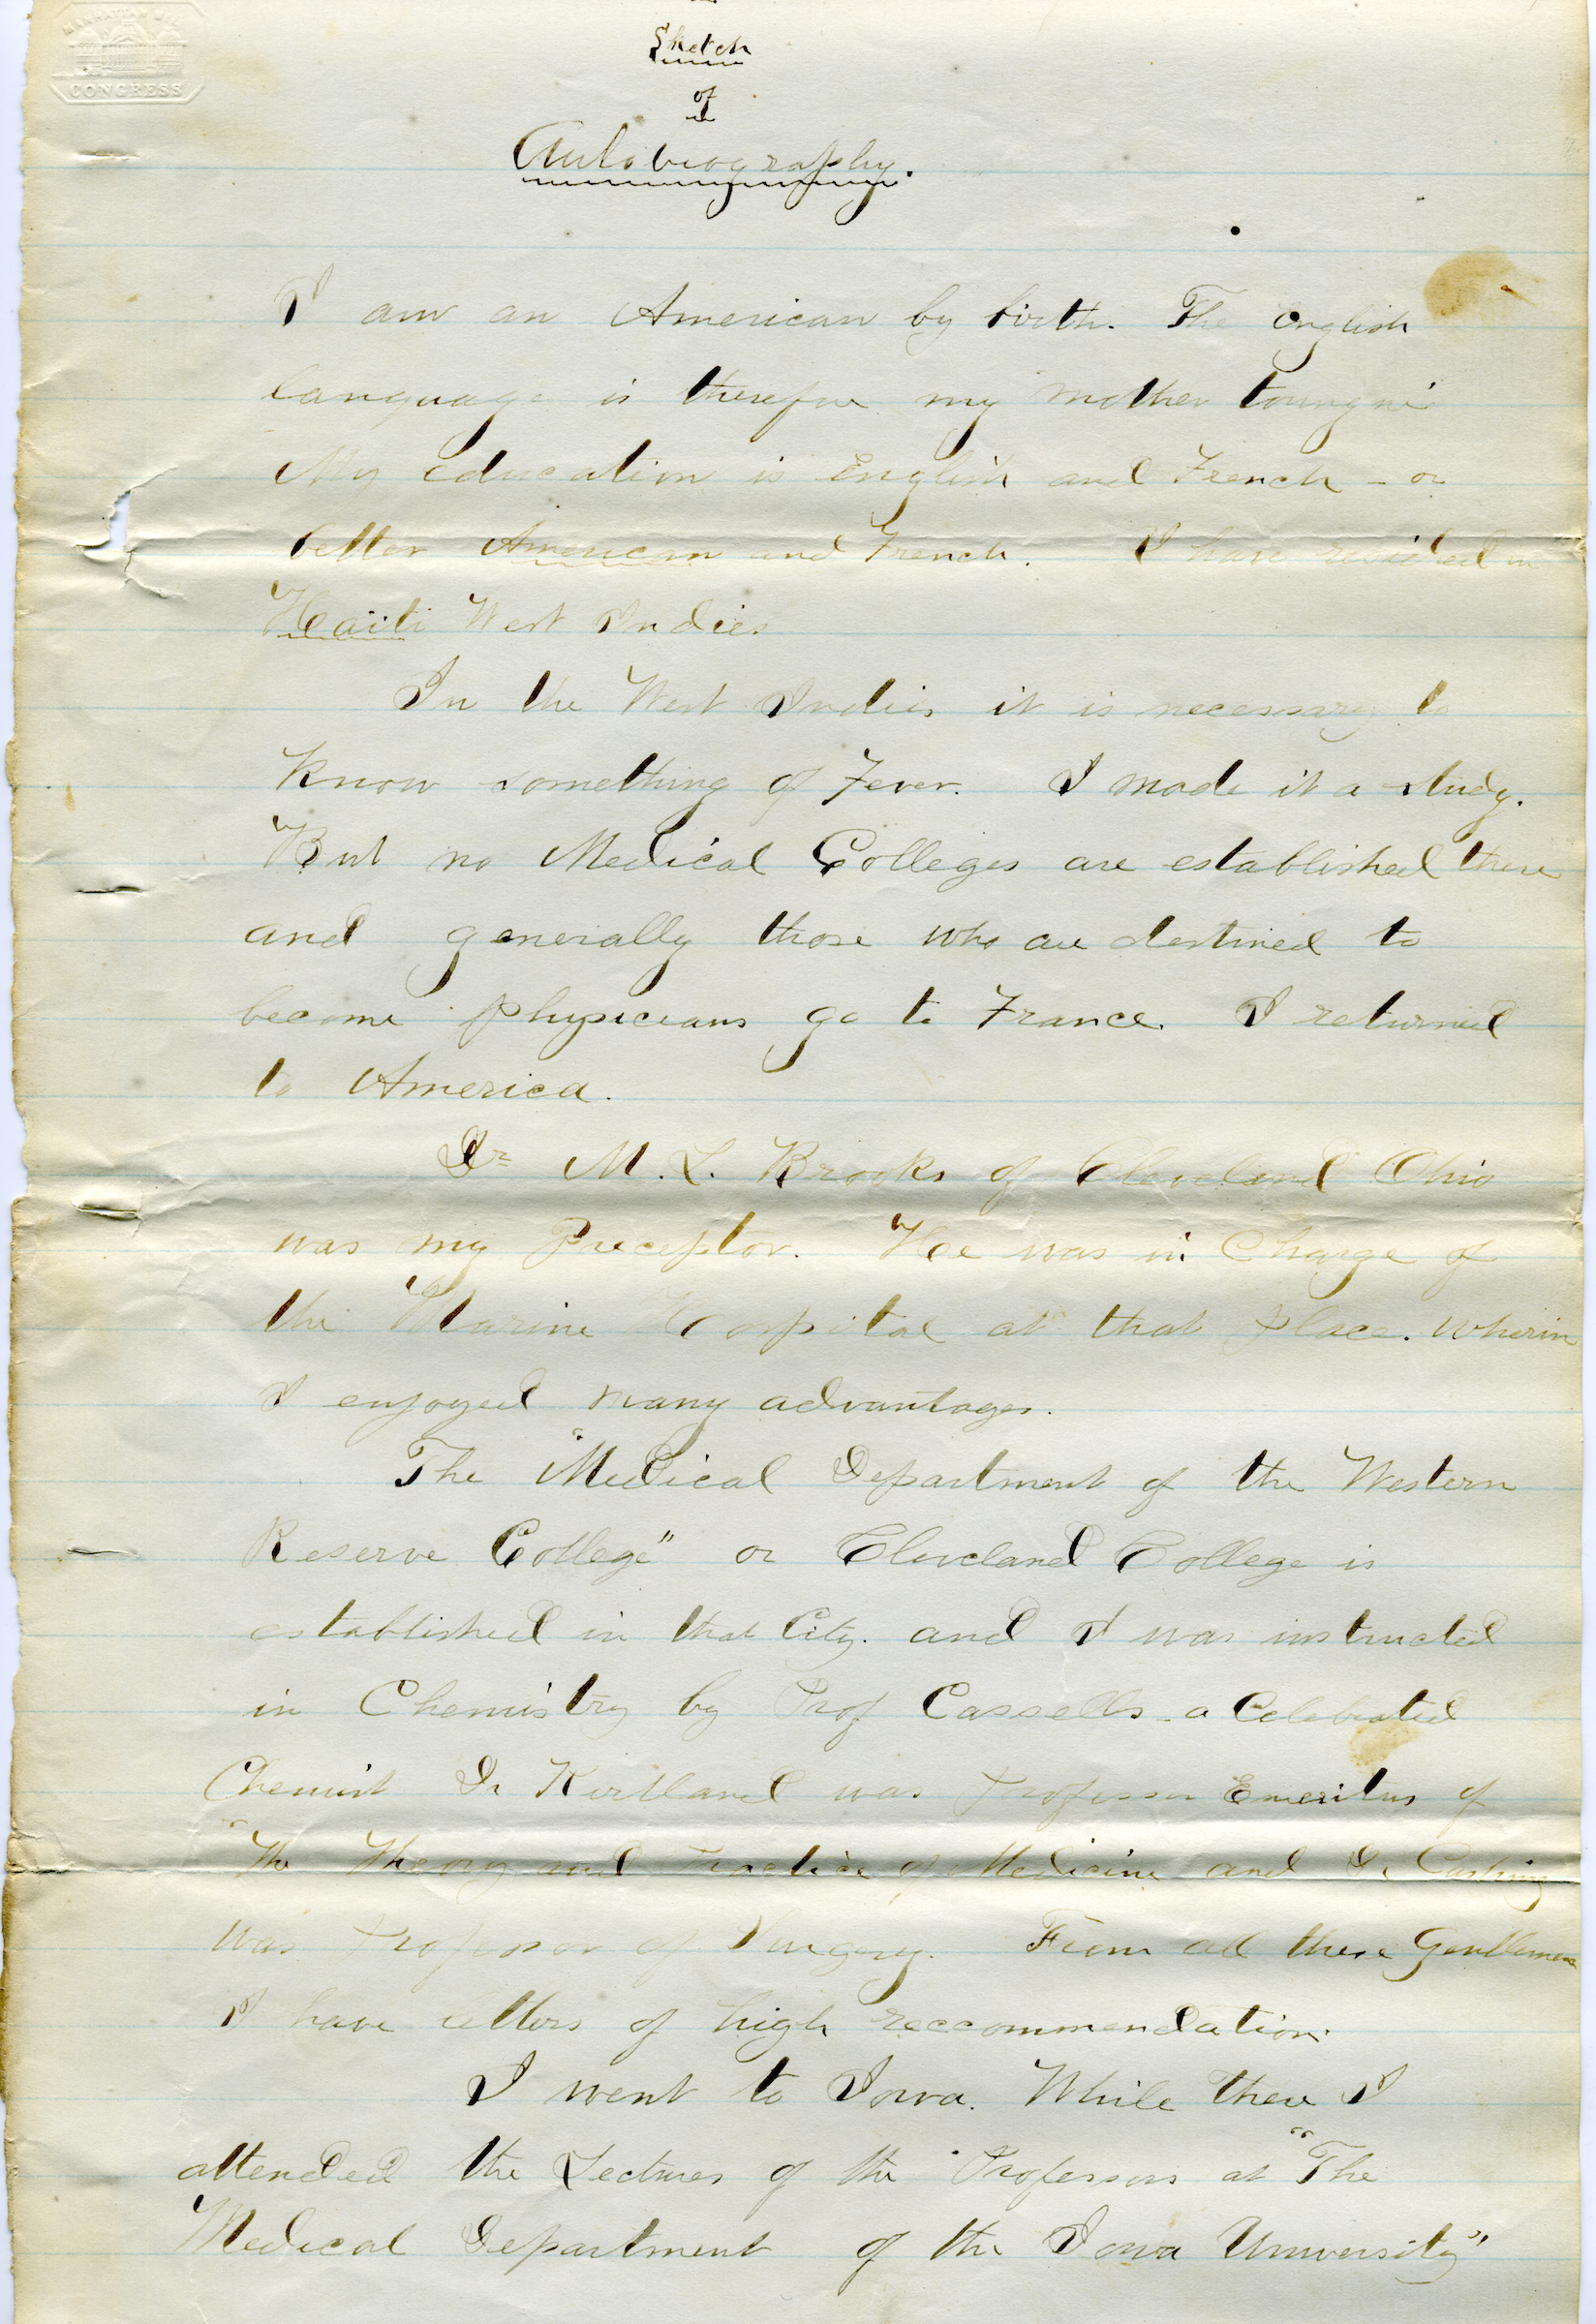 MANHATTAN MILL
CONGRESS
Sketch
of
Autobiography.
I am an American by birth. The English
language is therefore my mother toungue
My education is English and French - or
better American and French. I have resided in
Haïti West Indies
In the West Indies it is necessary to
know something of Fever. I made it a study.
But no Medical Colleges are established there
and generally those who are destined to
become physicians go to France. I returned
to America.
Dr M. L. Brooks of Cleveland Ohio
was my Preceptor. He was in Charge of
the Marine Hospital at that place. wherin
I enjoyed many advantages.
The "Medical Department of the Western
Reserve College" or Cleveland College is
established in that City. and I was instructed
in Chemistry by Prof Cassells - a Celebrated
Chemist Dr Kirtland was Professor Emeritus of
"The Theory and Practice of Medicine and Dr Cushing
was Professor of Surgery. From all these Gentlemen
I have letters of high reccommendation.
I went to Iowa. While there I
attended the Lectures of the Professors at "The
Medical Department of the Iowa University"